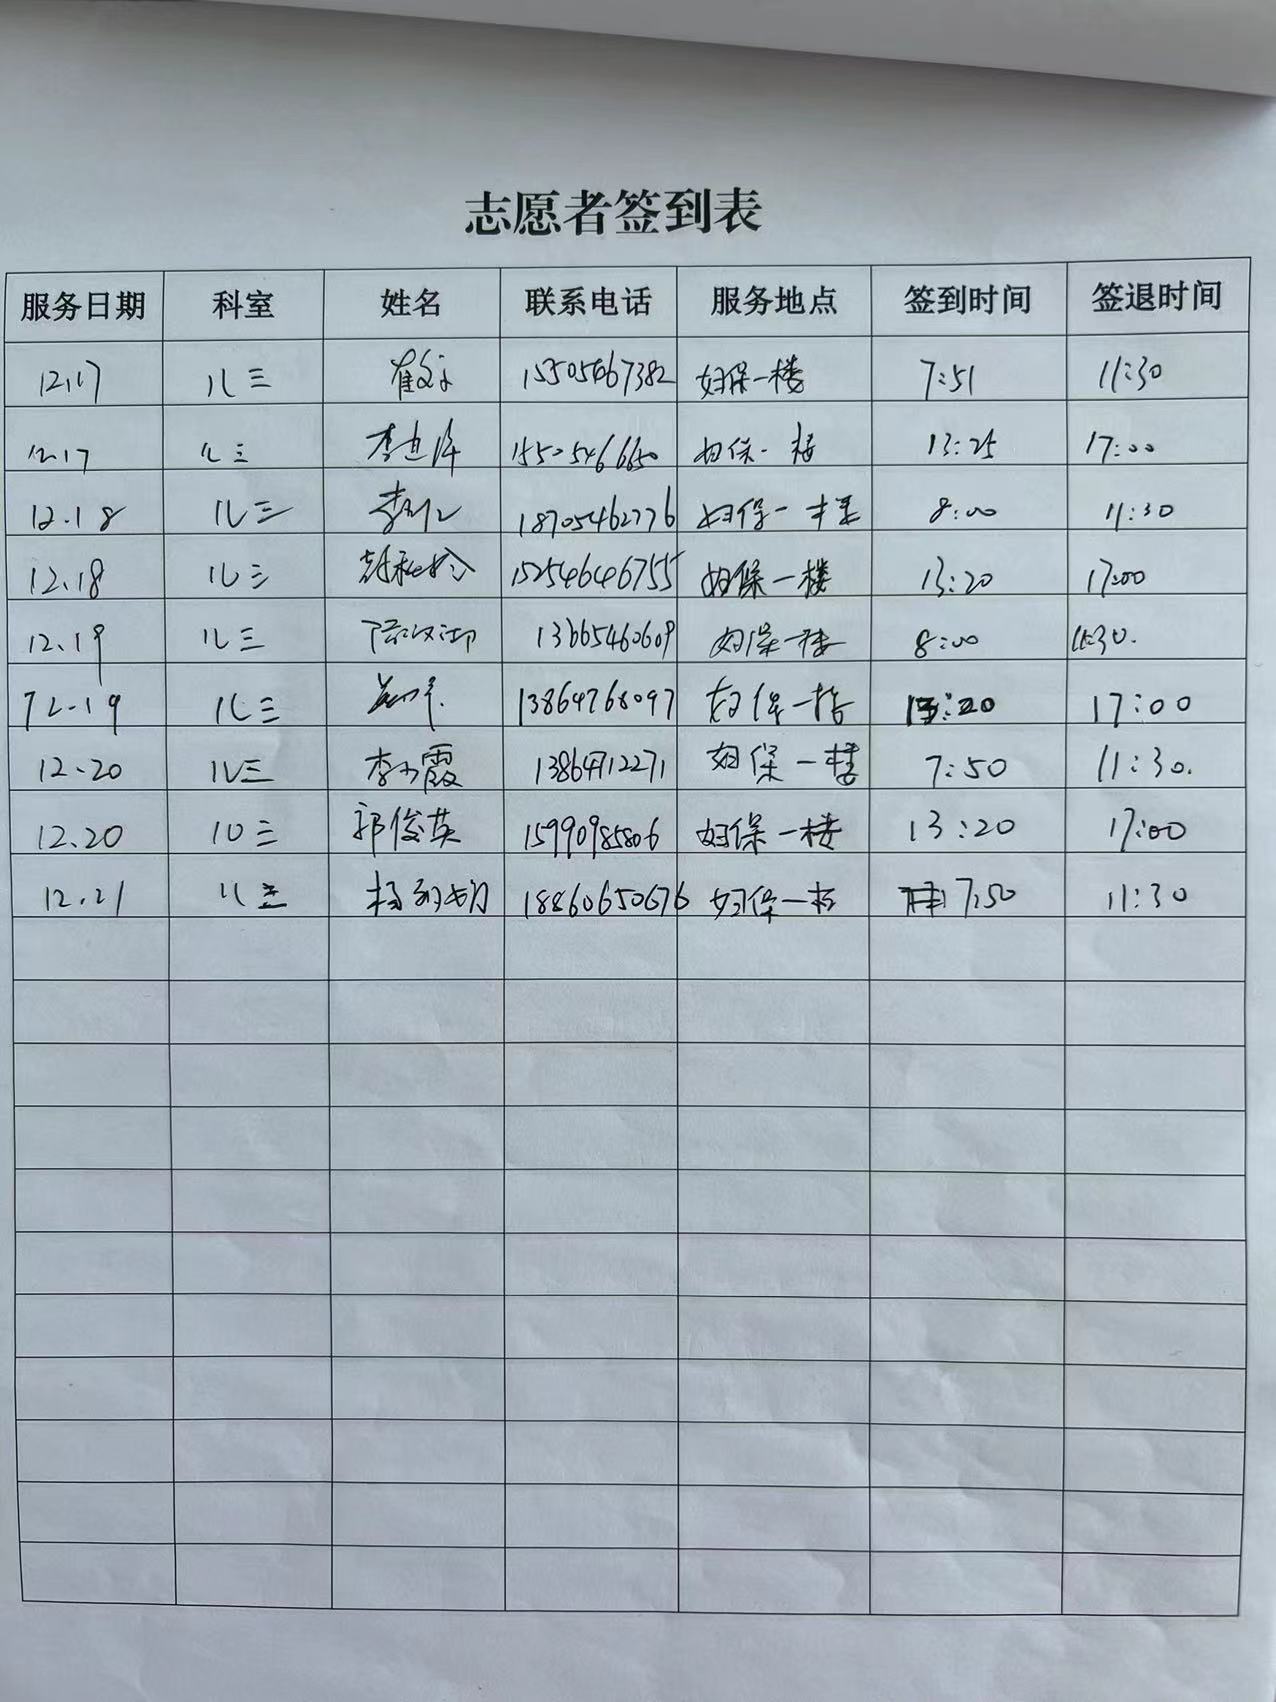 志愿者签到表
服务日期 科室 姓名 联系电话 服务地点 签到时间 签退时间
12.17 儿三 15505467382 妇保一楼 7:51 11:30
12.17 儿三 李 妇保一楼 13:25 17:00
12.18 儿三 李 18705462776 妇保一楼 8:00 11:30
12.18 儿三 15254646755 妇保一楼 13:20 17:00
12.19 儿三 13665460609 妇保一楼 8:00 11:30.
12.19 儿三 13864768097 妇保一楼 13:20 17:00
12.20 儿三 李小霞 13864712271 妇保一楼 7:50 11:30.
12.20 儿三 郭俊英 15990985806 妇保一楼 13:20 17:00
12.21 儿三 杨 18860650676 妇保一楼 7:50 11:30